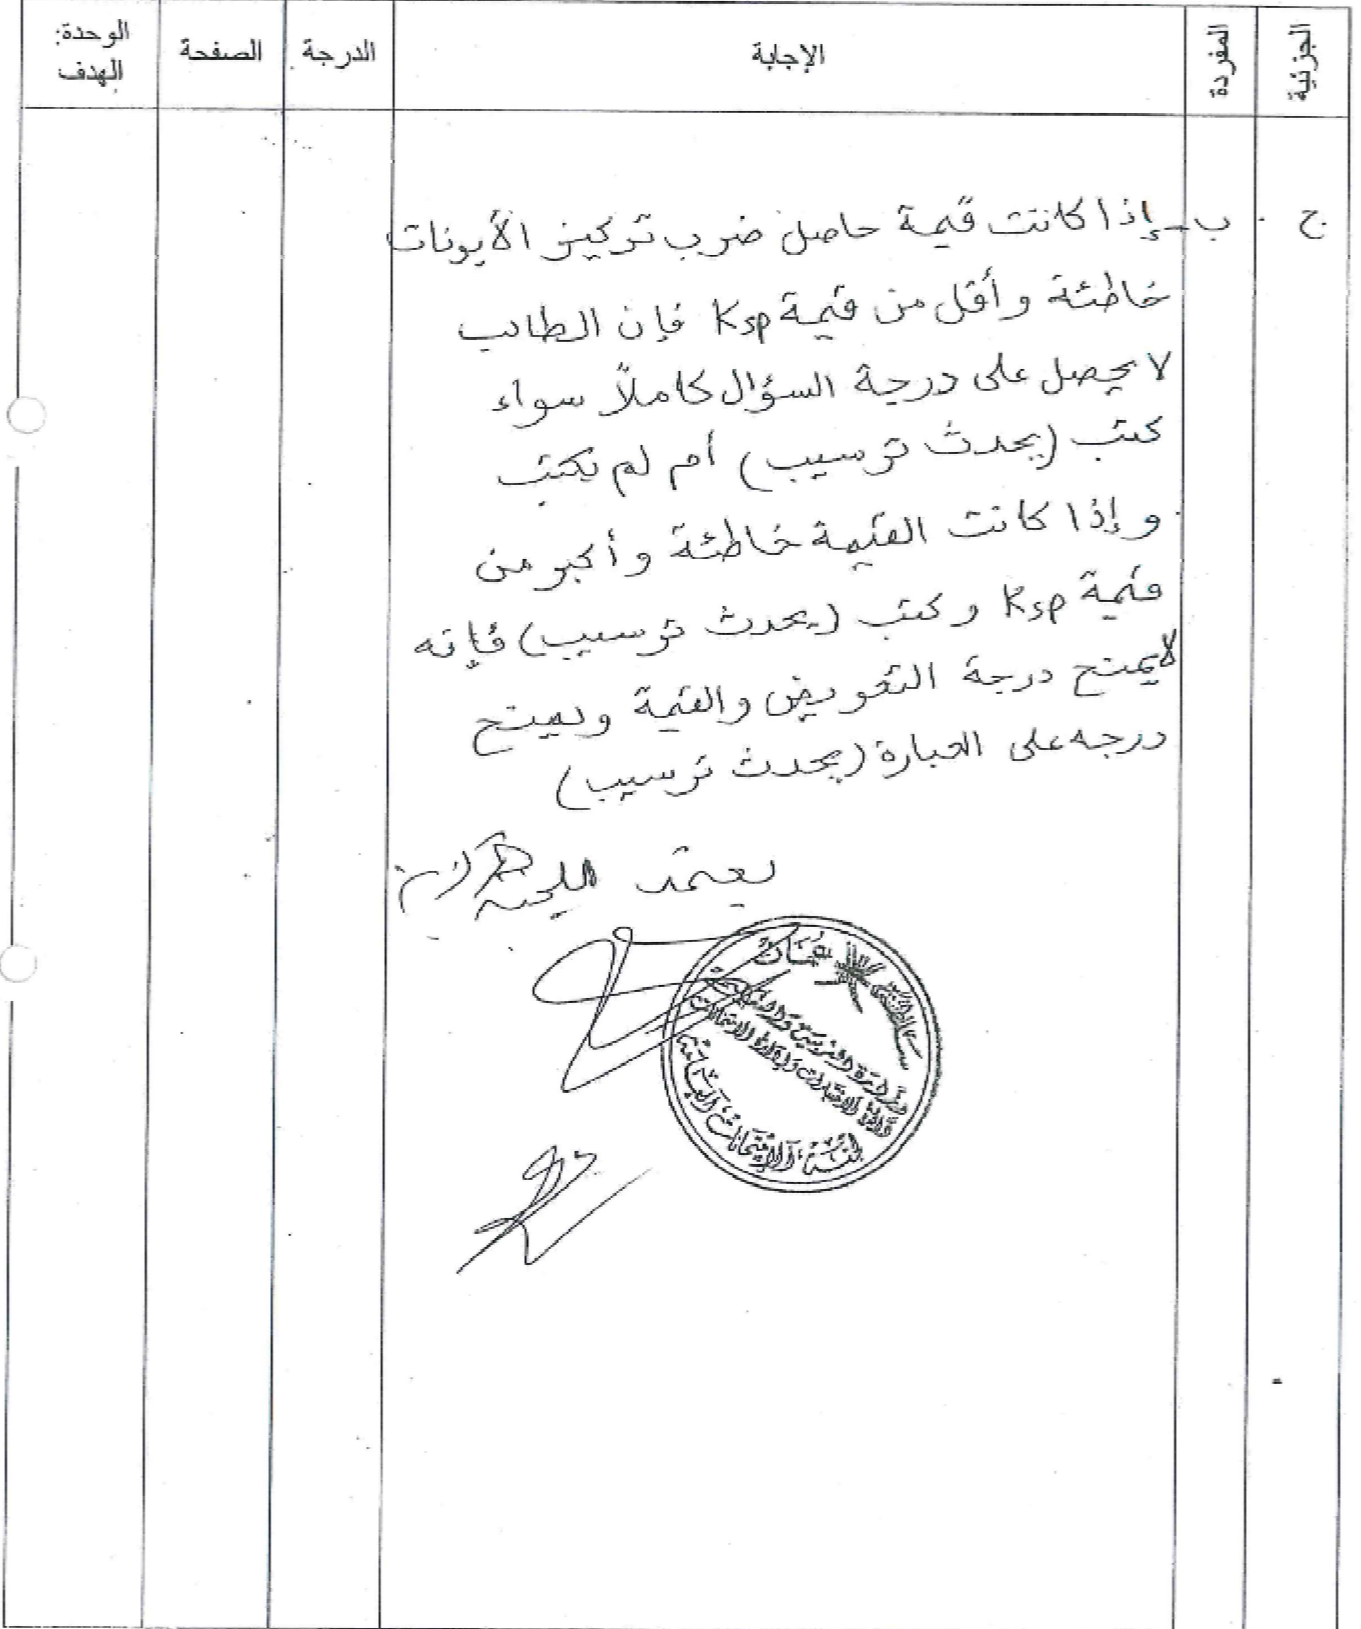 الجزئية المفردة الإجابة الدرجة الصفحة الوحدة:
الهدف
ج ب - إذا كانت قيمة حاصل ضرب تركيز الأيونات
خاطئة وأقل من قيمة Ksp فإن الطالب
لا يحصل على درجة السؤال كاملاً سواء
كتب (يحدث ترسيب) أم لم يكتب
وإذا كانت القيمة خاطئة وأكبر من
قيمة Ksp وكتب (يحدث ترسيب) فإنه
لا يمنح درجة التعويض والقيمة ويمنح
درجه على العبارة (يحدث ترسيب)
يعتمد
سلطنة عمان
وزارة التربية والتعليم